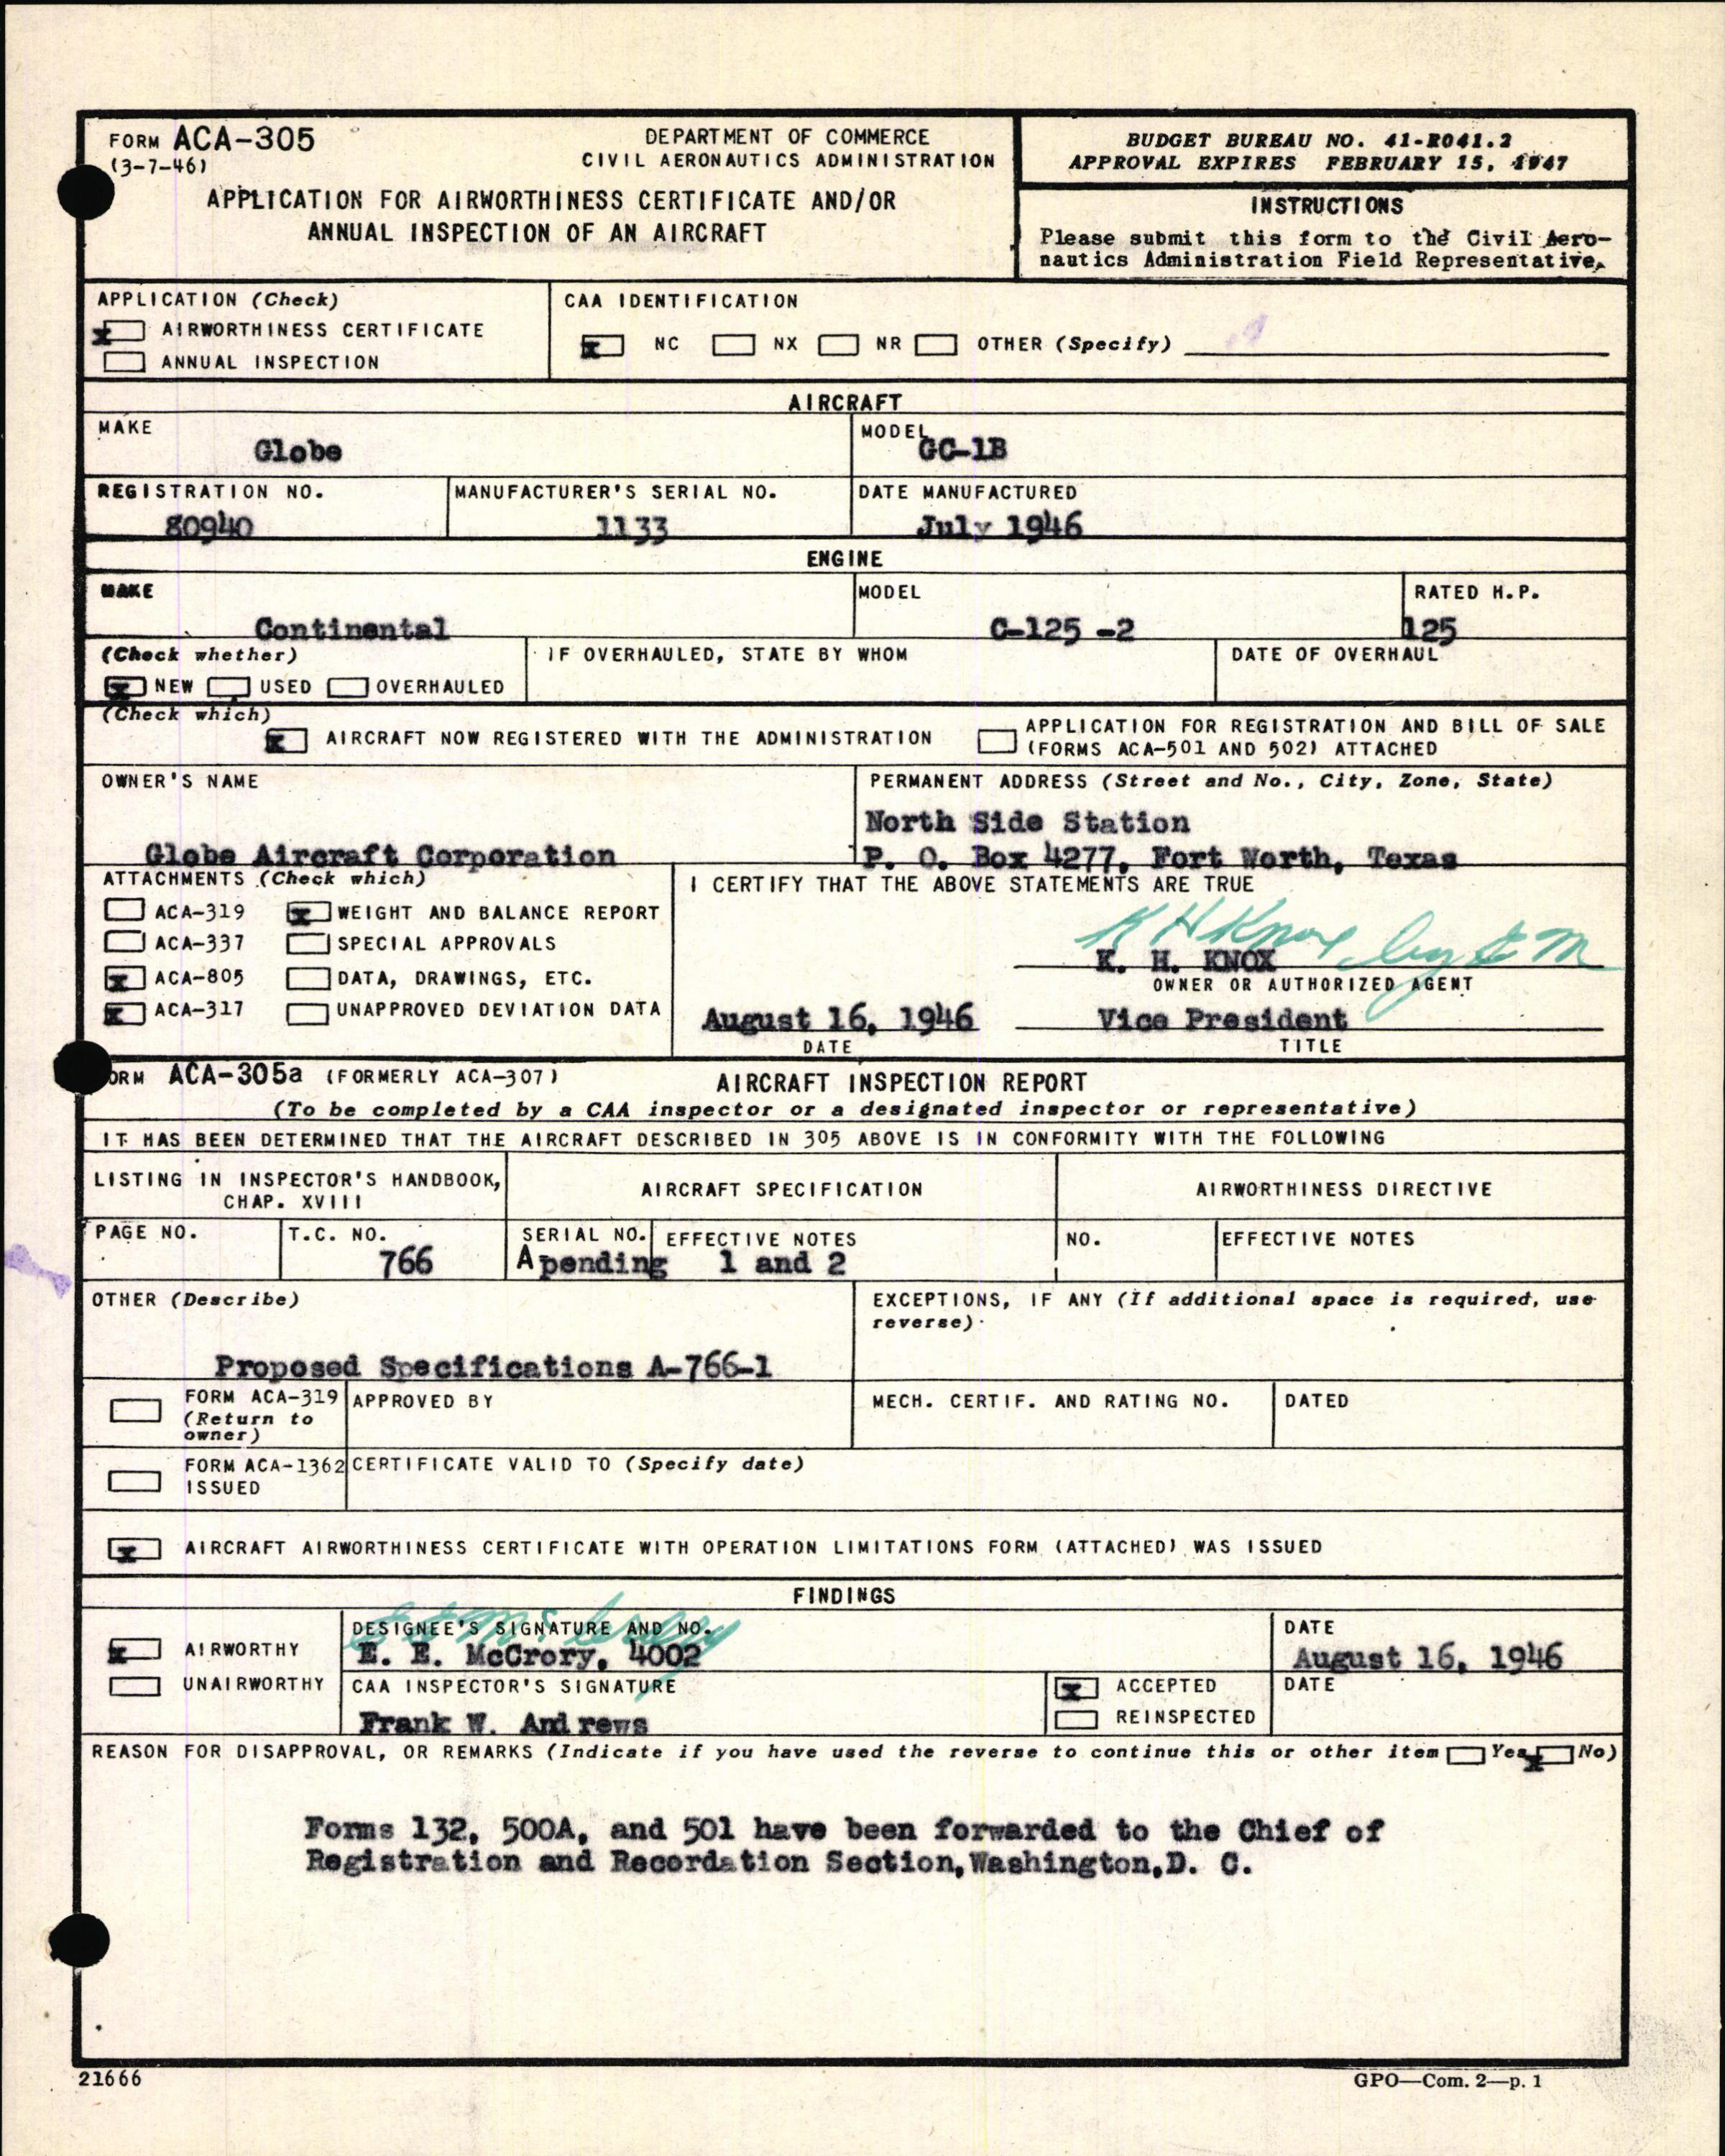 FORM ACA-305
(3-7-46)
DEPARTMENT OF COMMERCE
CIVIL AERONAUTICS ADMINISTRATION
APPLICATION FOR AIRWORTHINESS CERTIFICATE AND/OR
ANNUAL INSPECTION OF AN AIRCRAFT
BUDGET BUREAU NO. 41-R041.2
APPROVAL EXPIRES FEBRUARY 15, 1947
INSTRUCTIONS
Please submit this form to the Civil Aero-
nautics Administration Field Representative.
APPLICATION (Check)
x AIRWORTHINESS CERTIFICATE
ANNUAL INSPECTION
CAA IDENTIFICATION
x NC NX NR OTHER (Specify)
AIRCRAFT
MAKE
Globe
MODEL
GC-1B
REGISTRATION NO.
80940
MANUFACTURER'S SERIAL NO.
1133
DATE MANUFACTURED
July 1946
ENGINE
MAKE
Continental
MODEL
C-125 -2
RATED H.P.
125
(Check whether)
x NEW USED OVERHAULED
IF OVERHAULED, STATE BY WHOM
DATE OF OVERHAUL
(Check which)
x AIRCRAFT NOW REGISTERED WITH THE ADMINISTRATION
APPLICATION FOR REGISTRATION AND BILL OF SALE
(FORMS ACA-501 AND 502) ATTACHED
OWNER'S NAME
Globe Aircraft Corporation
PERMANENT ADDRESS (Street and No., City, Zone, State)
North Side Station
P. O. Box 4277, Fort Worth, Texas
ATTACHMENTS (Check which)
ACA-319 x WEIGHT AND BALANCE REPORT
ACA-337 SPECIAL APPROVALS
x ACA-805 DATA, DRAWINGS, ETC.
x ACA-317 UNAPPROVED DEVIATION DATA
I CERTIFY THAT THE ABOVE STATEMENTS ARE TRUE
K H Knox by E M
K. H. KNOX
OWNER OR AUTHORIZED AGENT
August 16, 1946 Vice President
DATE TITLE
ORM ACA-305a (FORMERLY ACA-307) AIRCRAFT INSPECTION REPORT
(To be completed by a CAA inspector or a designated inspector or representative)
IT HAS BEEN DETERMINED THAT THE AIRCRAFT DESCRIBED IN 305 ABOVE IS IN CONFORMITY WITH THE FOLLOWING
LISTING IN INSPECTOR'S HANDBOOK,
CHAP. XVIII
AIRCRAFT SPECIFICATION
AIRWORTHINESS DIRECTIVE
PAGE NO.
T.C. NO.
766
SERIAL NO.
A pending
EFFECTIVE NOTES
1 and 2
NO.
EFFECTIVE NOTES
OTHER (Describe)
Proposed Specifications A-766-1
EXCEPTIONS, IF ANY (If additional space is required, use
reverse)
FORM ACA-319
(Return to
owner)
APPROVED BY
MECH. CERTIF. AND RATING NO.
DATED
FORM ACA-1362
ISSUED
CERTIFICATE VALID TO (Specify date)
x AIRCRAFT AIRWORTHINESS CERTIFICATE WITH OPERATION LIMITATIONS FORM (ATTACHED) WAS ISSUED
FINDINGS
x AIRWORTHY
UNAIRWORTHY
DESIGNEE'S SIGNATURE AND NO.
E. E. McCrory, 4002
DATE
August 16, 1946
CAA INSPECTOR'S SIGNATURE
Frank W. Andrews
x ACCEPTED
REINSPECTED
DATE
REASON FOR DISAPPROVAL, OR REMARKS (Indicate if you have used the reverse to continue this or other item Yes x No)
Forms 132, 500A, and 501 have been forwarded to the Chief of
Registration and Recordation Section, Washington, D. C.
21666
GPO—Com. 2—p. 1